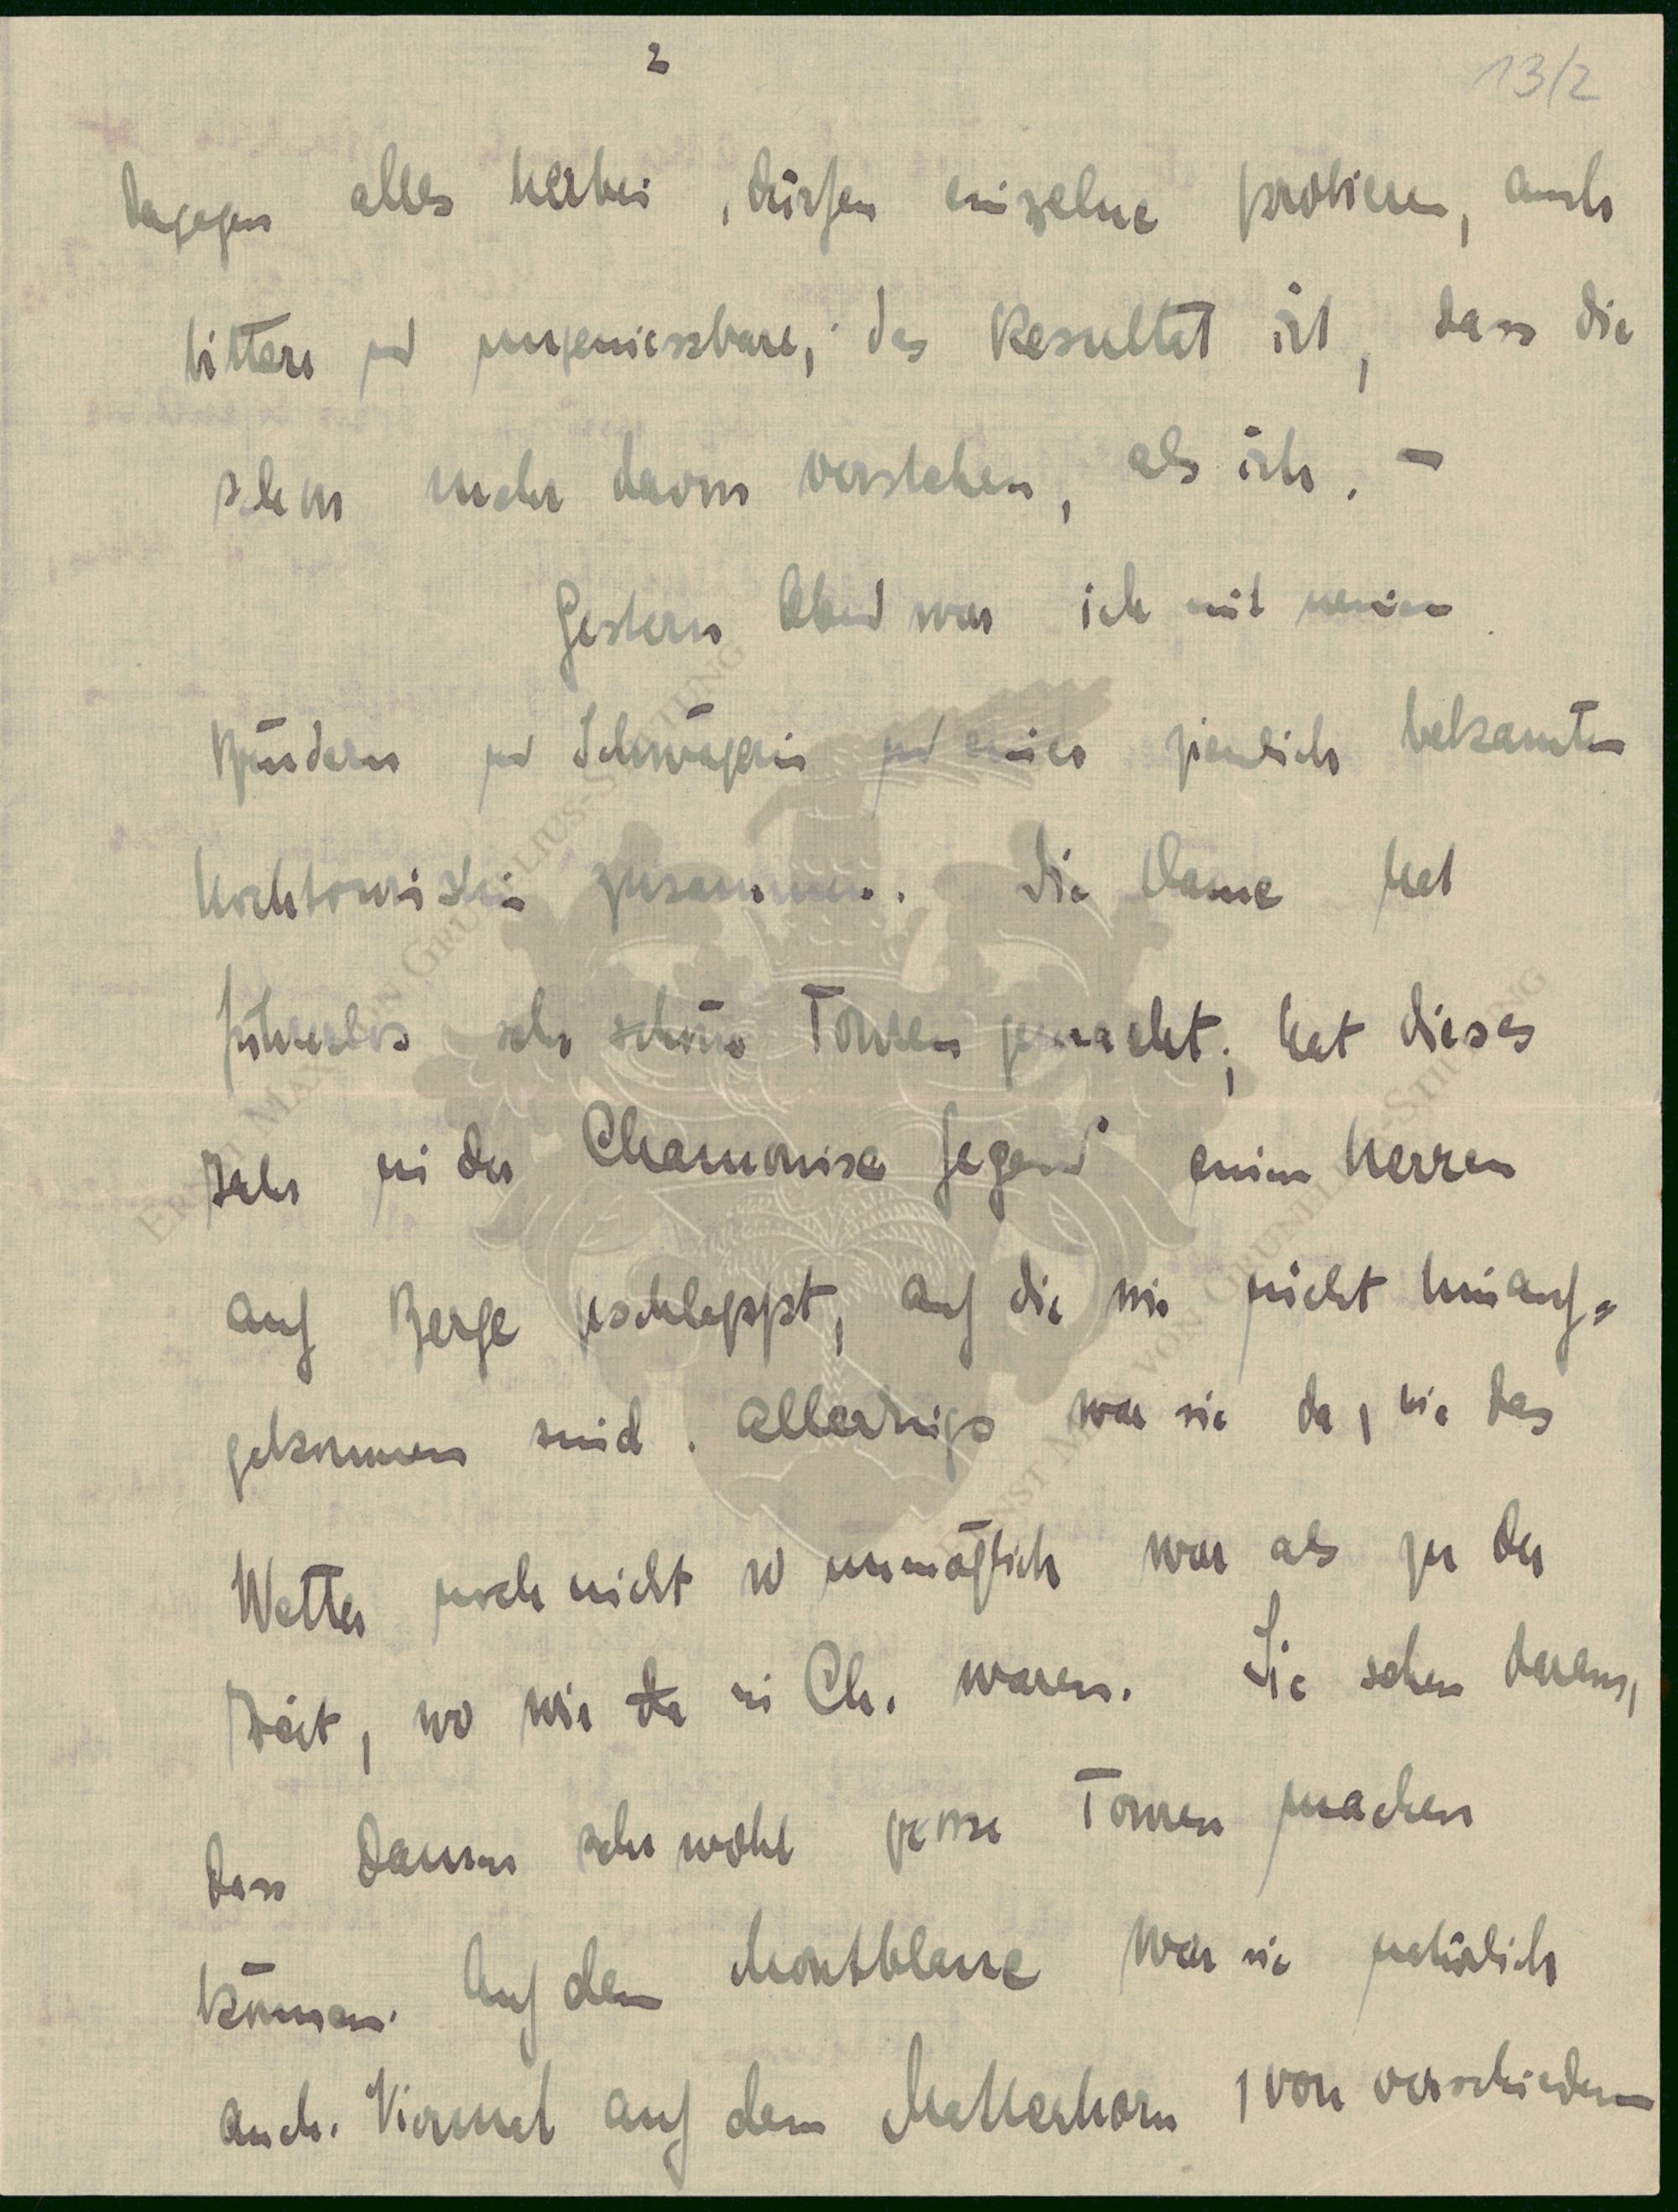 2
13/2
dagegen alles herbei, dürfen einzelne probieren, auch
bittere und ungeniessbare; das Resultat ist, dass die
schon mehr davon verstehen, als ich. –
Gestern Abend war ich mit meinen
Brüdern und Schwägerin und einer ziemlich bekannten
Hochtouristin zusammen. Die Dame hat
führerlos sehr schöne Touren gemacht; hat dieses
Jahr in der Chamonixer Gegend einen Herren
auf Berge geschleppt, auf die wir nicht hinauf=
gekommen sind. Allerdings war sie da, wie das
Wetter noch nicht so unmöglich war als zu der
Zeit, wo wir da in Ch. waren. Sie sehen daraus,
dass Damen sehr wohl grosse Touren machen
können. Auf dem Montblanc war sie natürlich
auch. Viermal auf dem Matterhorn, von verschiedenen
ERNST MAX VON GRUNELIUS-STIFTUNG
ERNST MAX VON GRUNELIUS-STIFTUNG